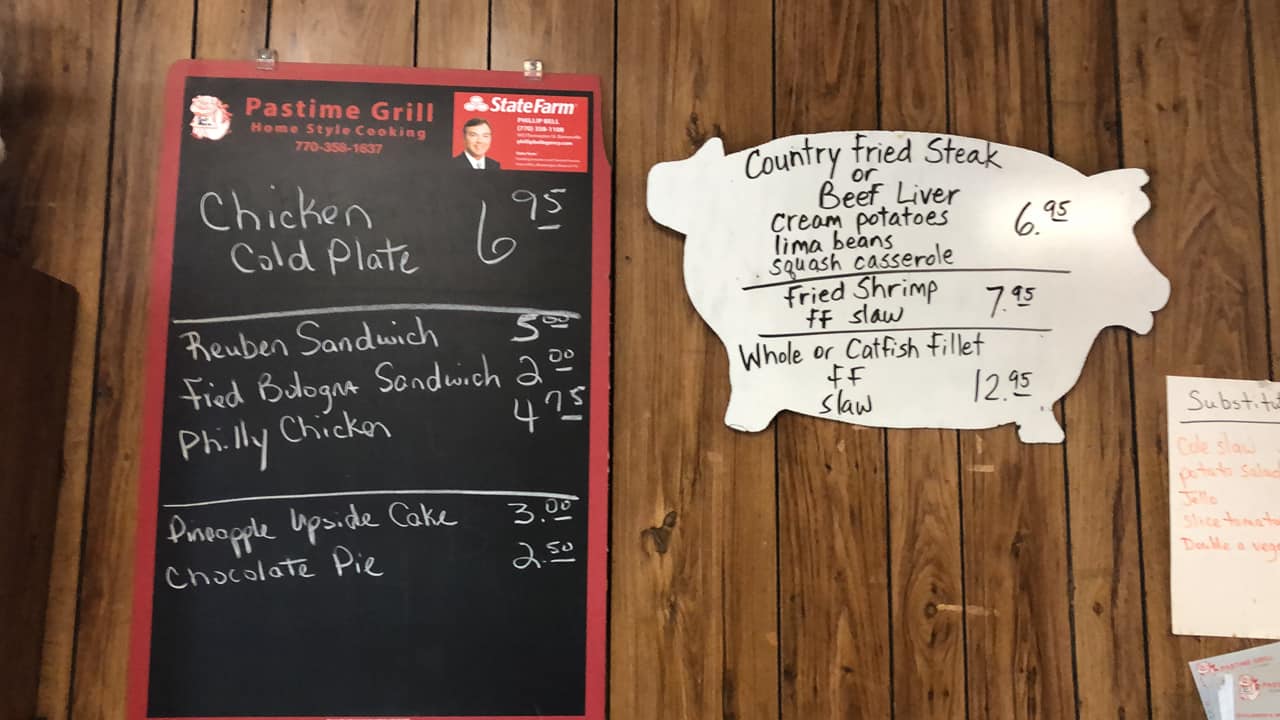 Pastime Grill
Home Style Cooking
770-358-1637
StateFarm
PHILLIP BELL
(770) 358-1108
Chicken
Cold Plate 6 95
Reuben Sandwich 5 00
Fied Bologna Sandwich 2 00
Philly Chicken 4 75
Pineapple Upside Cake 3.00
Chocolate Pie 2.50
Country Fried Steak
or
Beef Liver
cream potatoes 6.95
lima beans
squash casserole
Fried Shrimp 7.95
ff slaw
Whole or Catfish fillet
ff 12.95
slaw
Substitu
Cole slaw
potato Salad
Jello
Slice tomato
Double a veg
PASTIME GRILL